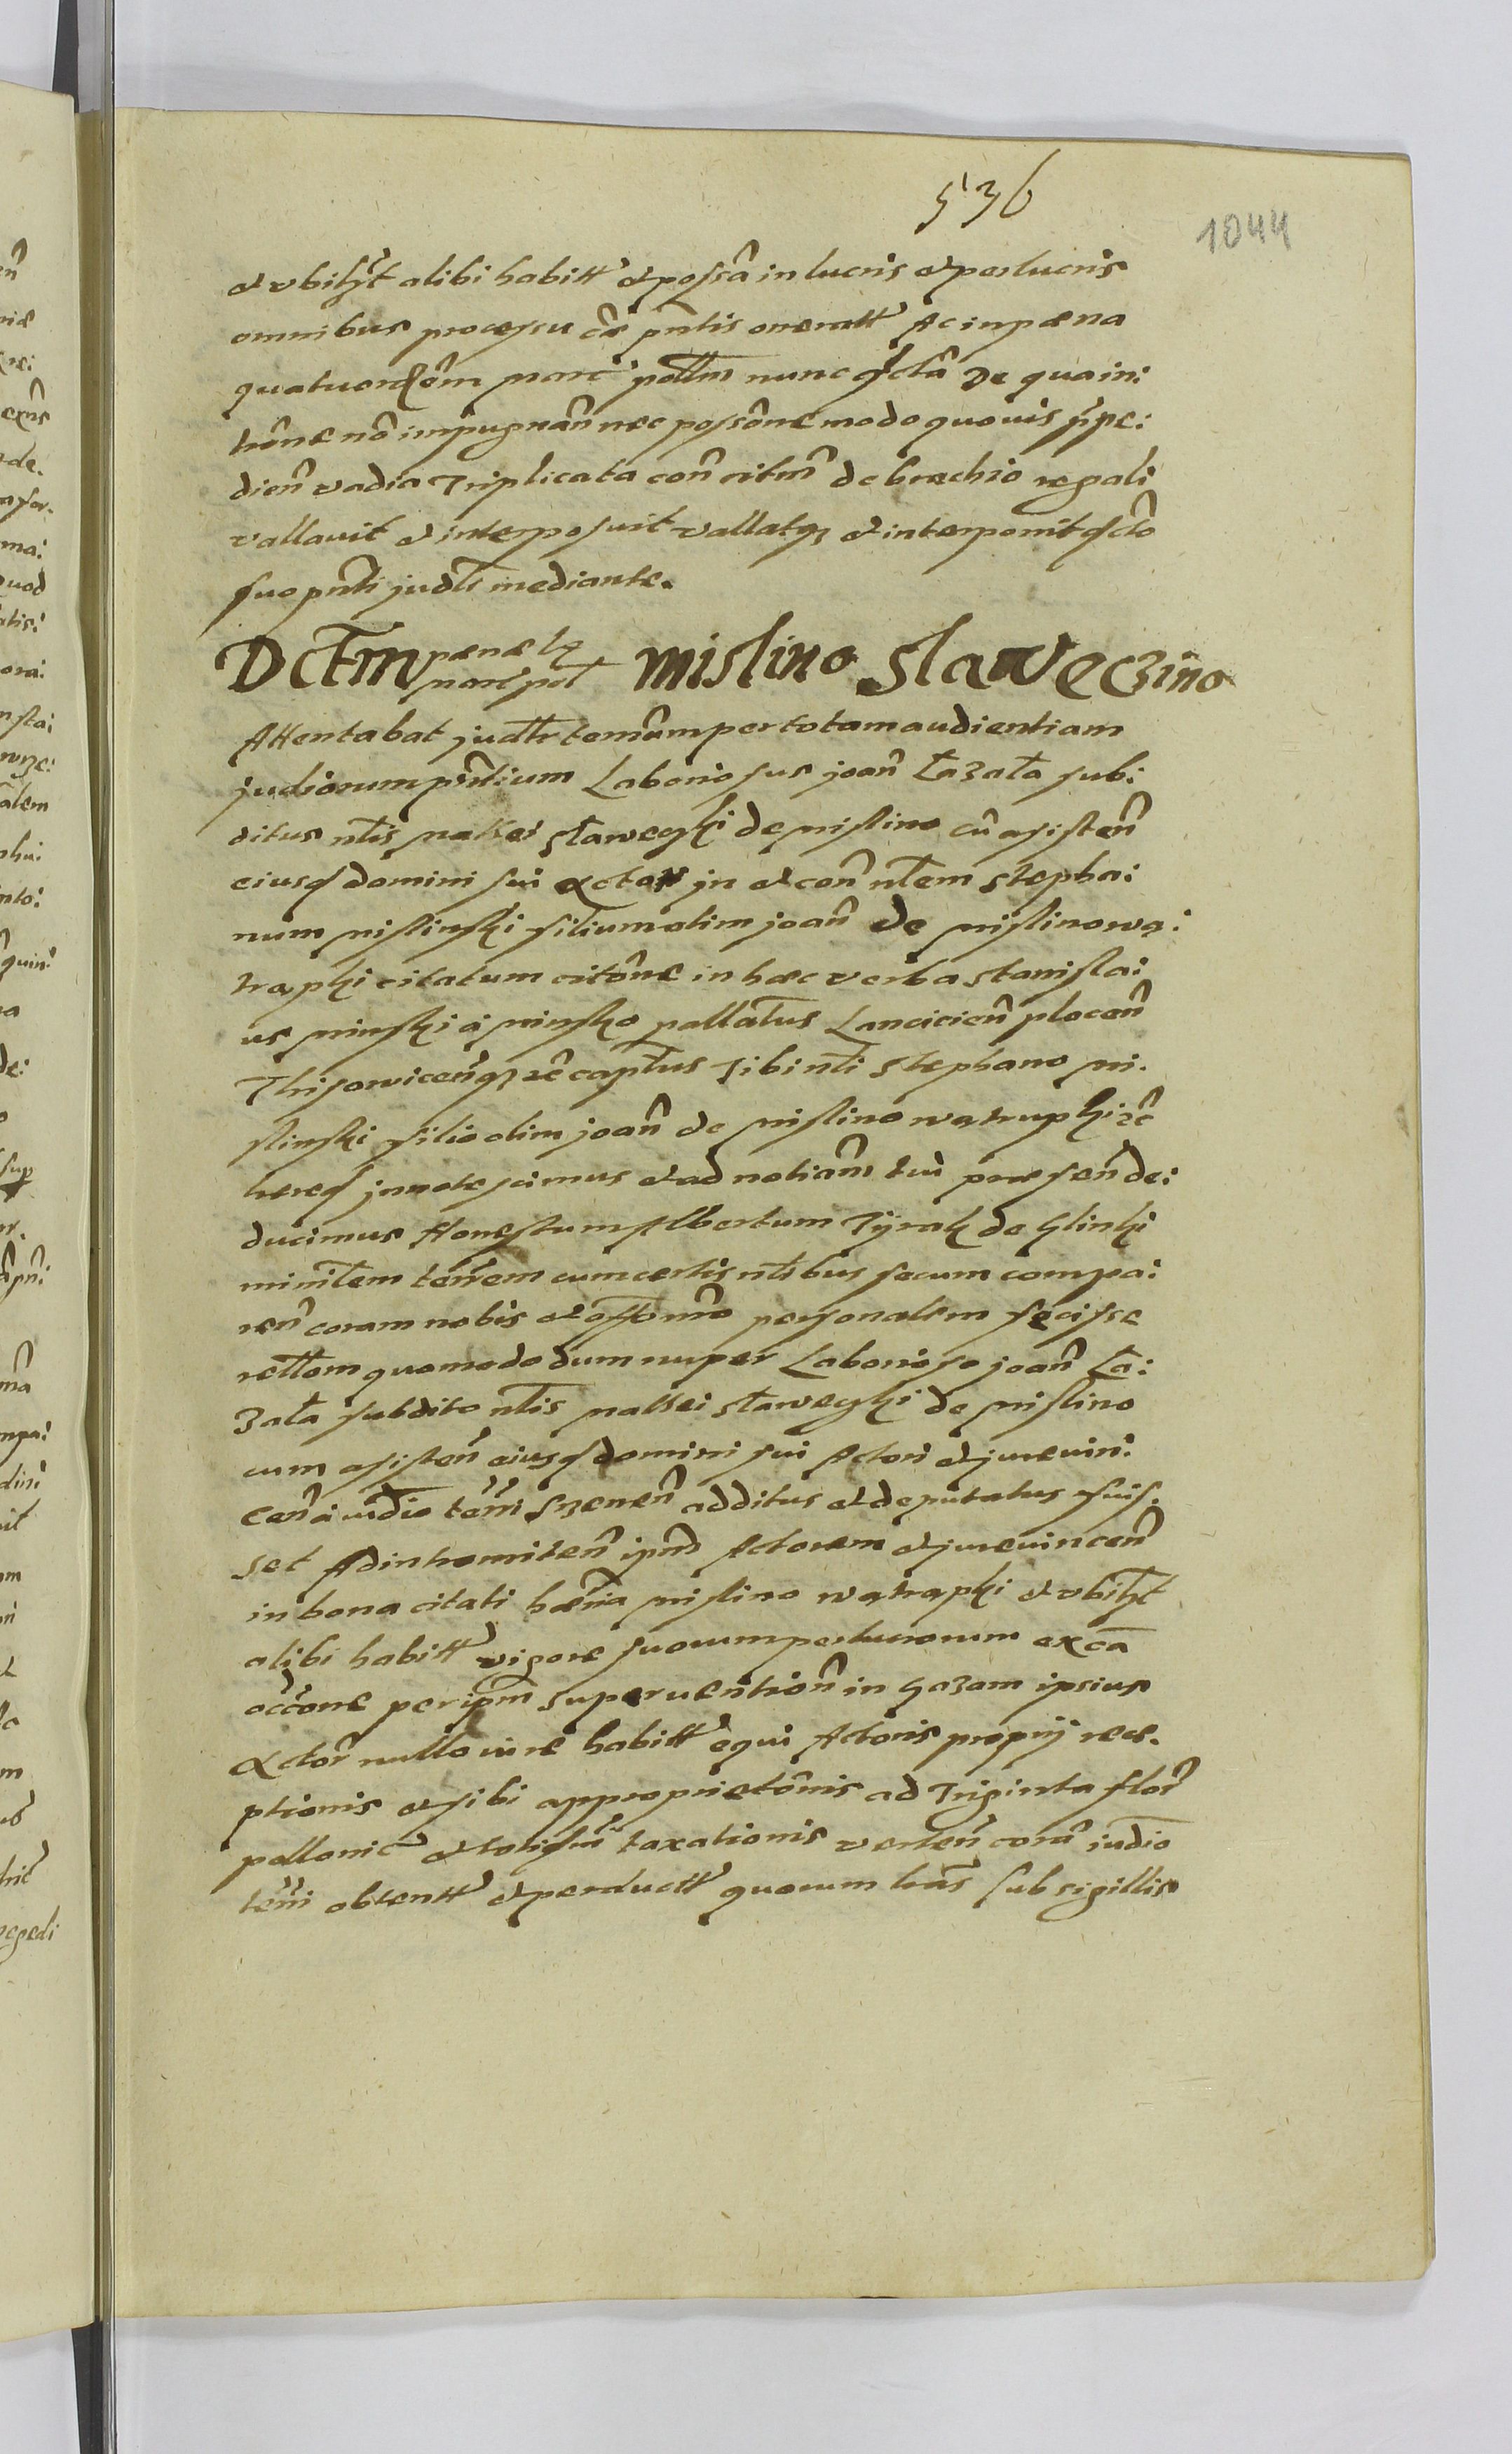 536
1044
et vbilỹt alibi habitt et possã in lucris et perlucris
omnibus processu cãe pñtis oneratt Ac in pæna
quatuordẽm marc pottm nunc dctã de qua in:
trõne nõ impugnañ nec possõne modo quouis ỹpe:
dieñ vadia Triplicata coñ citm̃ de brachio regali
vallauit et interposuit vallatqȝ et interponit dctõ
suo pñti judti mediante.
Dctm pænæ
marc pot Mislino Slaweczino
Attentabat judtr termũm per totam audientiam
judiorum pñtium Laboriosus joañ Łazała sub:
ditus ntis Mattei Sławęski de Mislino cũ asisteñ
eiusd domini sui Actor jn et coñ ntem Stepha:
num Mislinski filium olim joañ de Mislino wą:
traphi citatum citõne in hæc verba Stanisla:
us Minski a Minsko pallatus Lancicień ploceñ
Thisoviceñqȝ rẽ captus Tibi nti Stephano Mi.
slinski filio olim joañ de Mislino watruphi rẽ
hered jnnotescimus et ad notiam̃ tui præseñ de:
ducimus Honestum Albertum Tÿrak de Glinki
minitem terrẽm cum certis ntibus secum compa:
reñ coram nobis et offo nrõ personalem fecisse
rettom quomodo dum nuper Laborioso joañ Ła:
zała subdito ntis Mattei Sławęski de Mislino
cum asisteñ eiusd domini sui Actori et jureuin:
ceñ a iudio terrñi Srzeneñ additus et deputatus fuis.
set Ad intromiteñ ipm̃ Actorem et jureuinceñ
in bona citati hæria Mislino wątraphi et vbilỹt
alibi habitt vigore suorum perlucrorum ex cã
occõne per ipm̃ superuentioñ in Gazam ipsius
Actor nullo iure habitt equi Actoris proprij rece.
ptionis et sibi appropriatõnis ad Triginta flor
pollonic et totidm̃ taxationis verteñ corã iudio
terrñi obtentt et perductt quorum lrãs sub sigillis